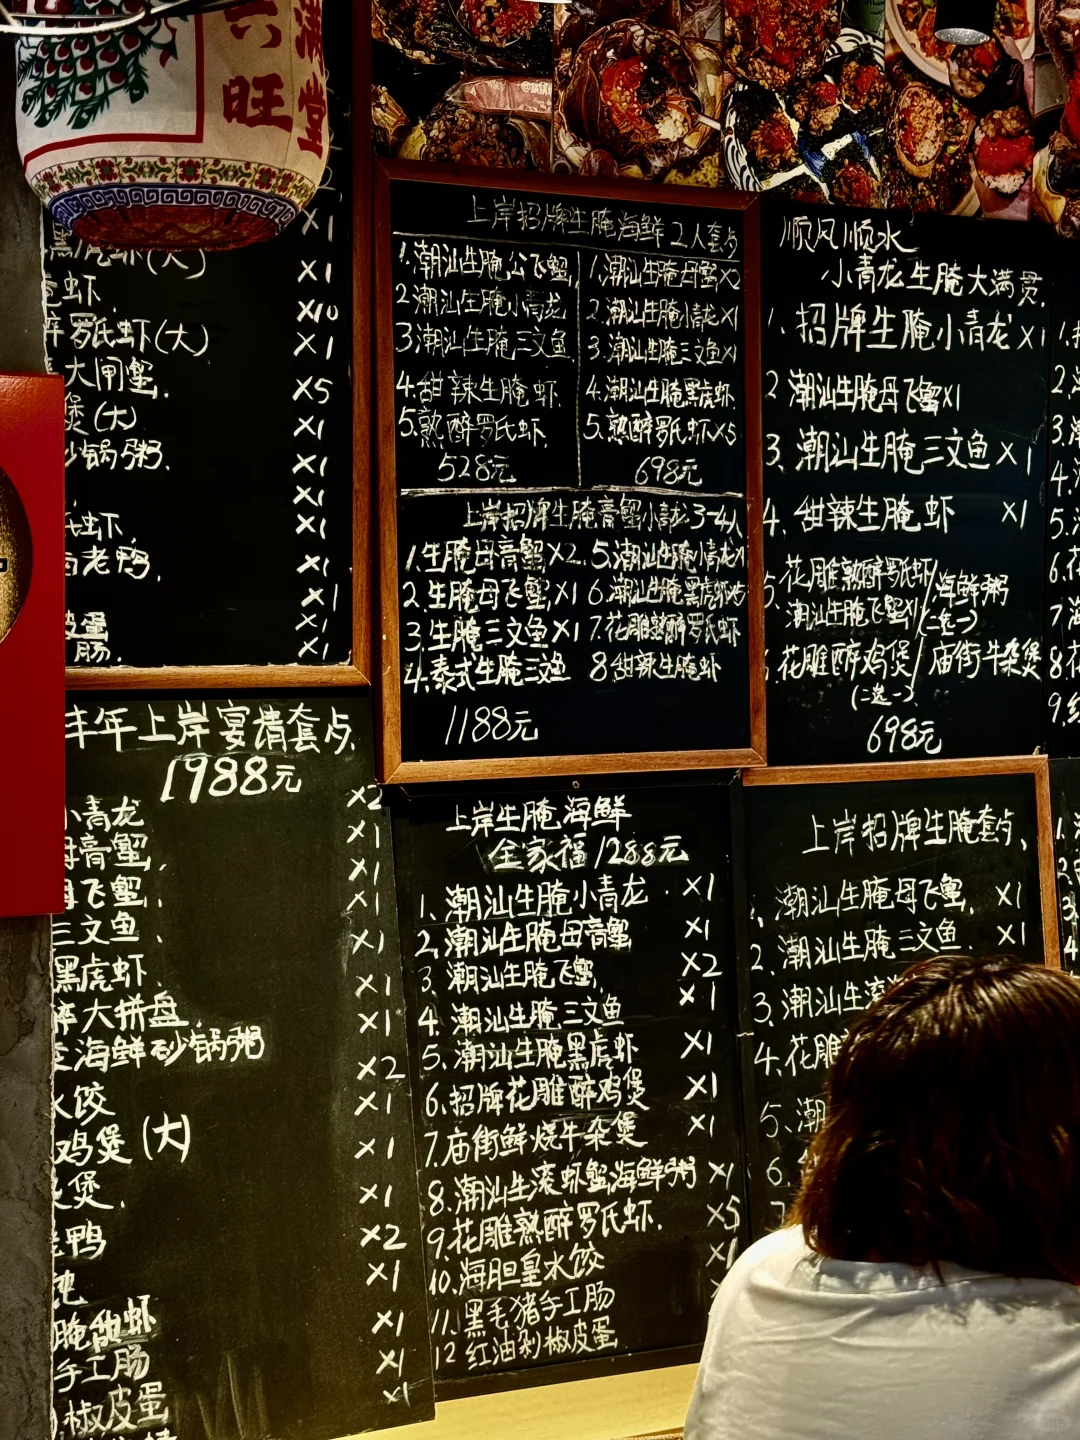 六 满
旺 堂
黑虎虾(大) ×1
虾 ×10
罗氏虾(大) ×1
大闸蟹 ×5
煲(大) ×1
砂锅粥. ×1
×1
氏虾, ×1
老鸭, ×1
×1
皮蛋 ×1
肠. ×1
丰年上岸宴请套歺.
1988元
小青龙 ×2
膏蟹, ×1
飞蟹, ×1
三文鱼、 ×1
黑虎虾. ×1
大拼盘. ×1
海鲜砂锅粥 ×2
水饺 ×1
鸡煲(大) ×1
煲. ×1
鸭 ×2
×1
腌甜虾 ×1
手工肠 ×1
椒皮蛋 ×1
上岸招牌生腌海鲜2人套歺
1.潮汕生腌公飞蟹,
2潮汕生腌小青龙
3潮汕生腌三文鱼.
4.甜辣生腌虾.
5.熟醉罗氏虾.
528元
1.潮汕生腌母蟹×2
2.潮汕生腌小青龙×1
3.潮汕生腌三文鱼×1
4.潮汕生腌黑虎虾.
5.熟醉罗氏虾×5
698元
上岸招牌生腌膏蟹小青龙3-4人
1.生腌母膏蟹×2.
2.生腌母飞蟹×1
3.生腌三文鱼×1
4.泰式生腌三文鱼
5.潮汕生腌小青龙×1
6.潮汕生腌黑虎虾×5
7.花雕熟醉罗氏虾
8甜辣生腌虾
1188元
上岸生腌海鲜
全家福1288元
1、潮汕生腌小青龙.×1
2、潮汕生腌母膏蟹 ×1
3、潮汕生腌飞蟹, ×2
4、潮汕生腌三文鱼 ×1
5、潮汕生腌黑虎虾 ×1
6、招牌花雕醉鸡煲 ×1
7.庙街鲜烧牛杂煲 ×1
8.潮汕生滚虾蟹海鲜粥 ×1
9.花雕熟醉罗氏虾. ×5
10.海胆皇水饺 ×1
11.黑毛猪手工肠
12红油剁椒皮蛋
顺风顺水
小青龙生腌大满贯.
1.招牌生腌小青龙×1
2潮汕生腌母飞蟹×1
3.潮汕生腌三文鱼×1
4.甜辣生腌虾 ×1
5.花雕熟醉罗氏虾/海鲜粥
潮汕生腌飞蟹×1 (二选一)
花雕醉鸡煲/庙街牛杂煲
(二选一)
698元
上岸招牌生腌套歺、
潮汕生腌母飞蟹. ×1
2.潮汕生腌三文鱼. ×1
3.潮汕生滚
4.花雕
5、潮
6.
7
1.
2.
3.
4.
5.
6.
7
8.
9.